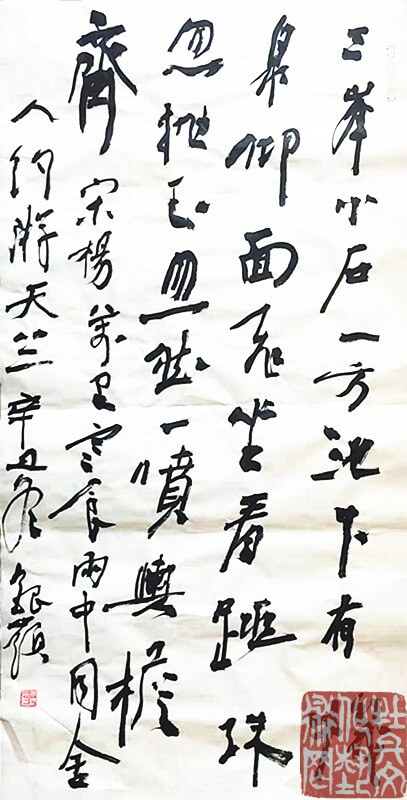 三峯小石一方池下有
泉仰面飛坐看跳珠
忽抛玉忽然一噴與檐
齊 宋楊萬里寒食雨中同舍
人約游天竺 辛丑冬 銀嶺